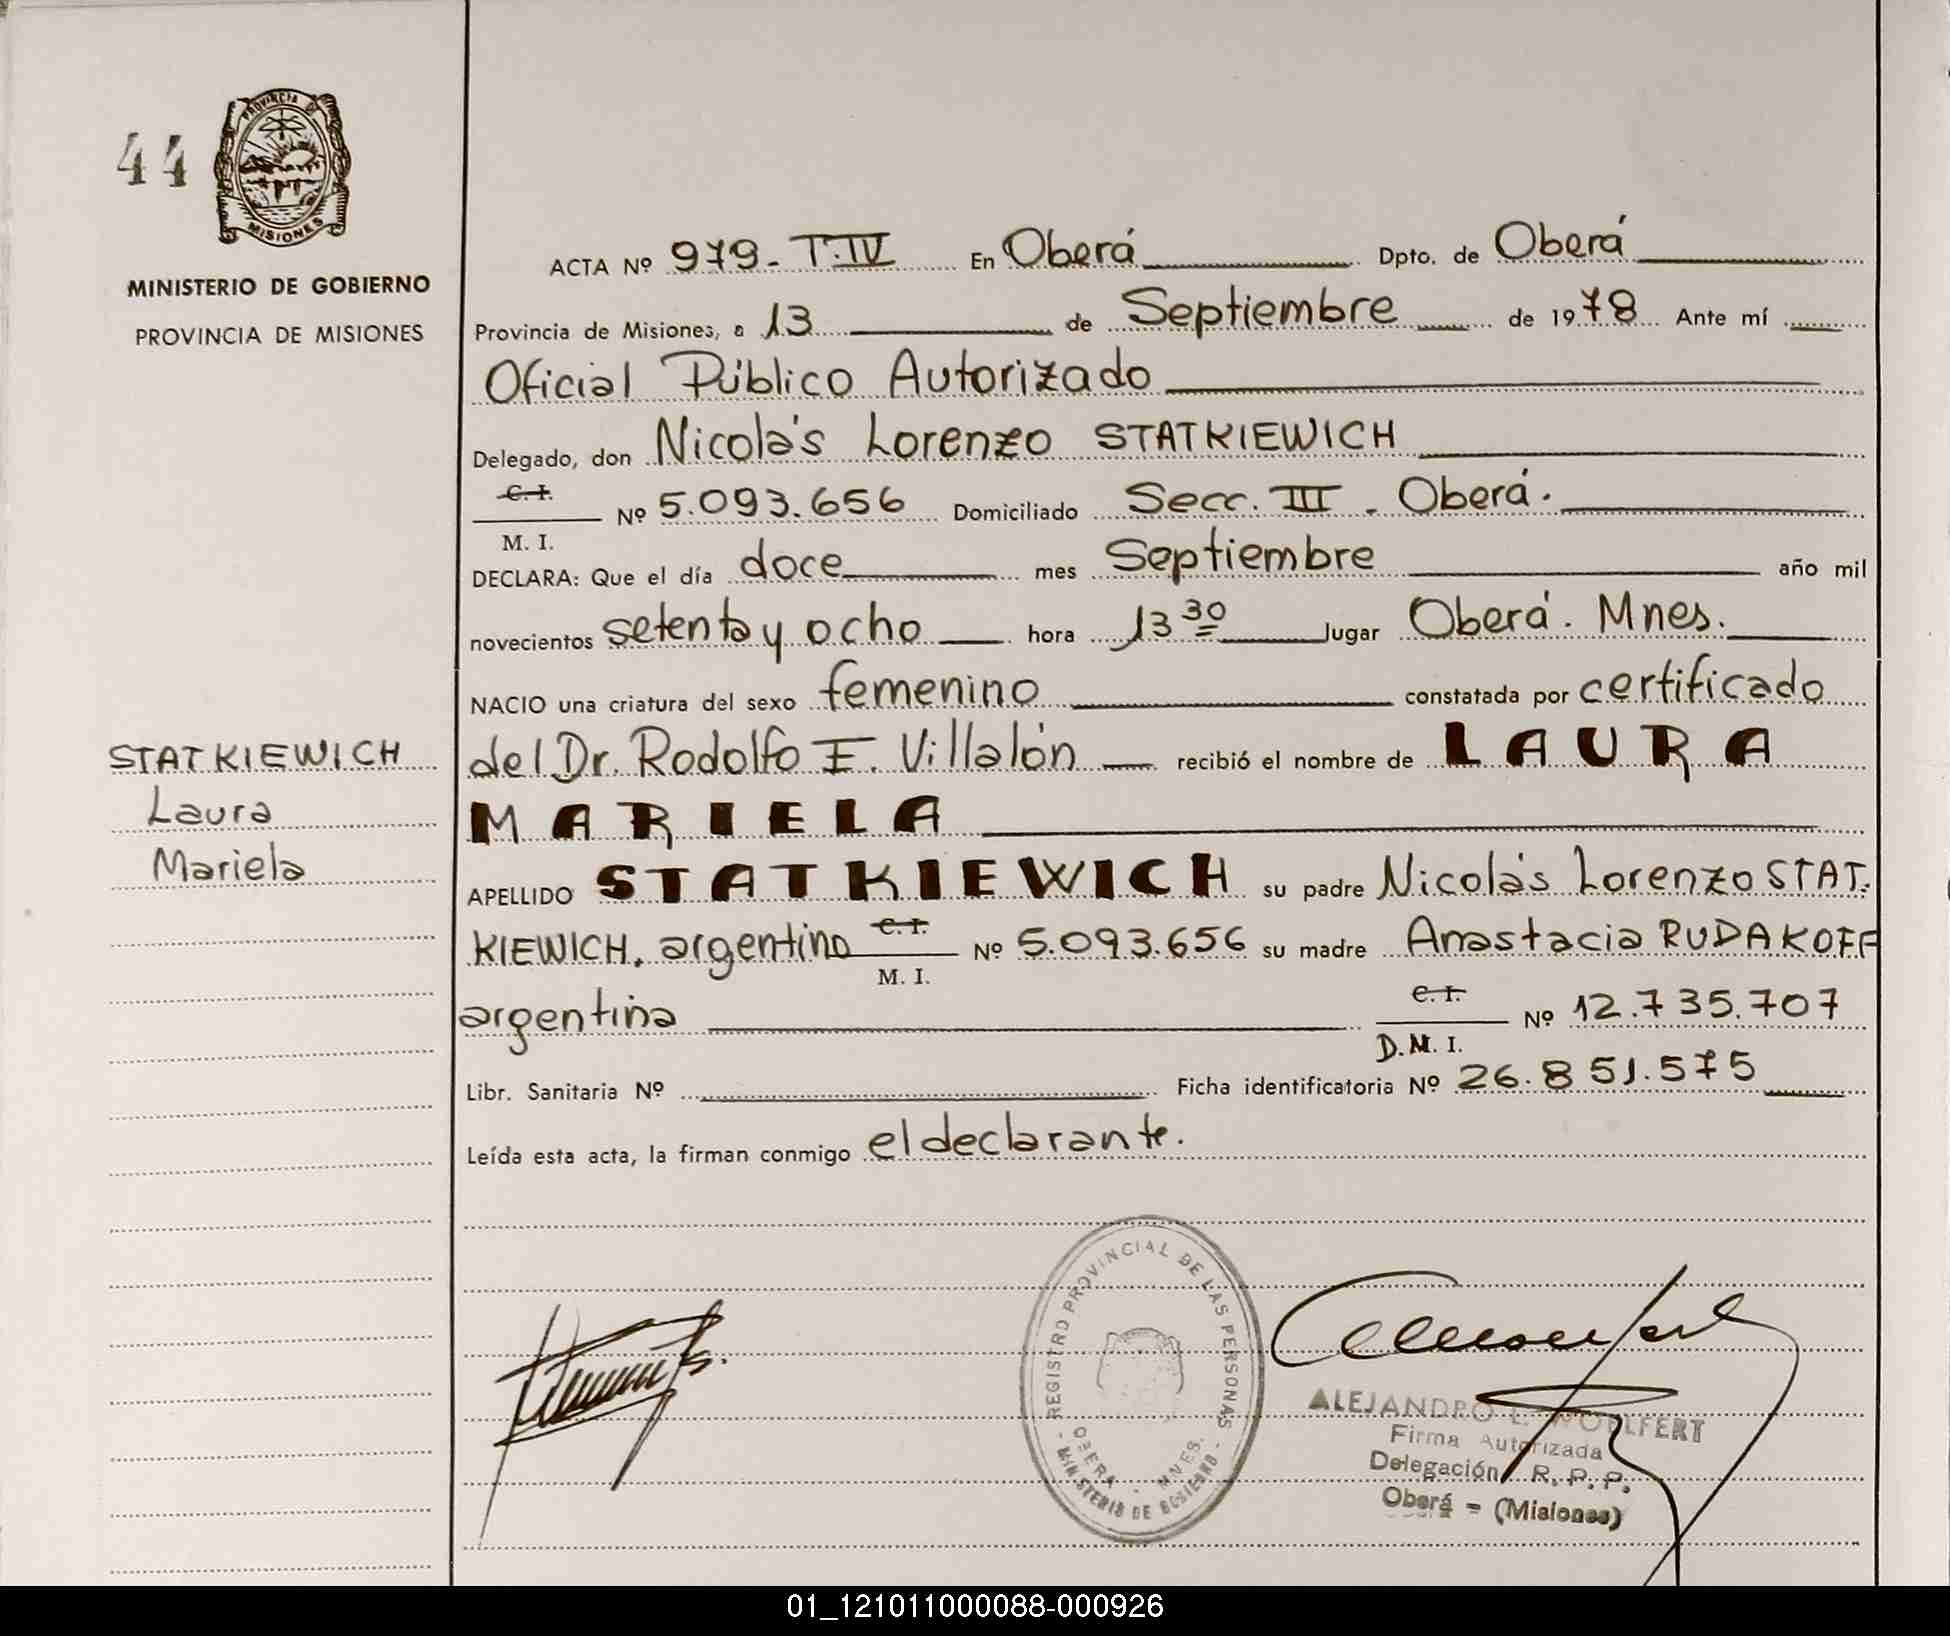 44
PROVINCIA DE
MISIONES
MINISTERIO DE GOBIERNO
PROVINCIA DE MISIONES
ACTA Nº 979- T.IV En Oberá Dpto. de Oberá
Provincia de Misiones, a 13 de Septiembre de 1978 Ante mí
Oficial Público Autorizado
Delegado, don Nicolás Lorenzo STATKIEWICH
C. I.
Nº 5.093.656 Domiciliado Secc. III. Oberá.
M. I.
DECLARA: Que el día doce mes Septiembre año mil
novecientos setenta y ocho hora 13 30 lugar Oberá. Mnes.
NACIO una criatura del sexo femenino constatada por certificado
del Dr. Rodolfo E. Villalón recibió el nombre de LAURA
MARIELA
APELLIDO STATKIEWICH su padre Nicolás Lorenzo STAT-
KIEWICH. argentino C. I. Nº 5.093.656 su madre Anastacia RUDAKOFF
M. I.
argentina C. I. Nº 12.735.707
D. M. I.
Libr. Sanitaria Nº Ficha identificatoria Nº 26.851.575
Leída esta acta, la firman conmigo el declarante.
STATKIEWICH
Laura
Mariela
- REGISTRO PROVINCIAL DE LAS PERSONAS -
OBERA - MNES.
MINISTERIO DE GOBIERNO
ALEJANDRO L. WOLLFERT
Firma Autorizada
Delegación R. P. P.
Oberá - (Misiones)
01_121011000088-000926